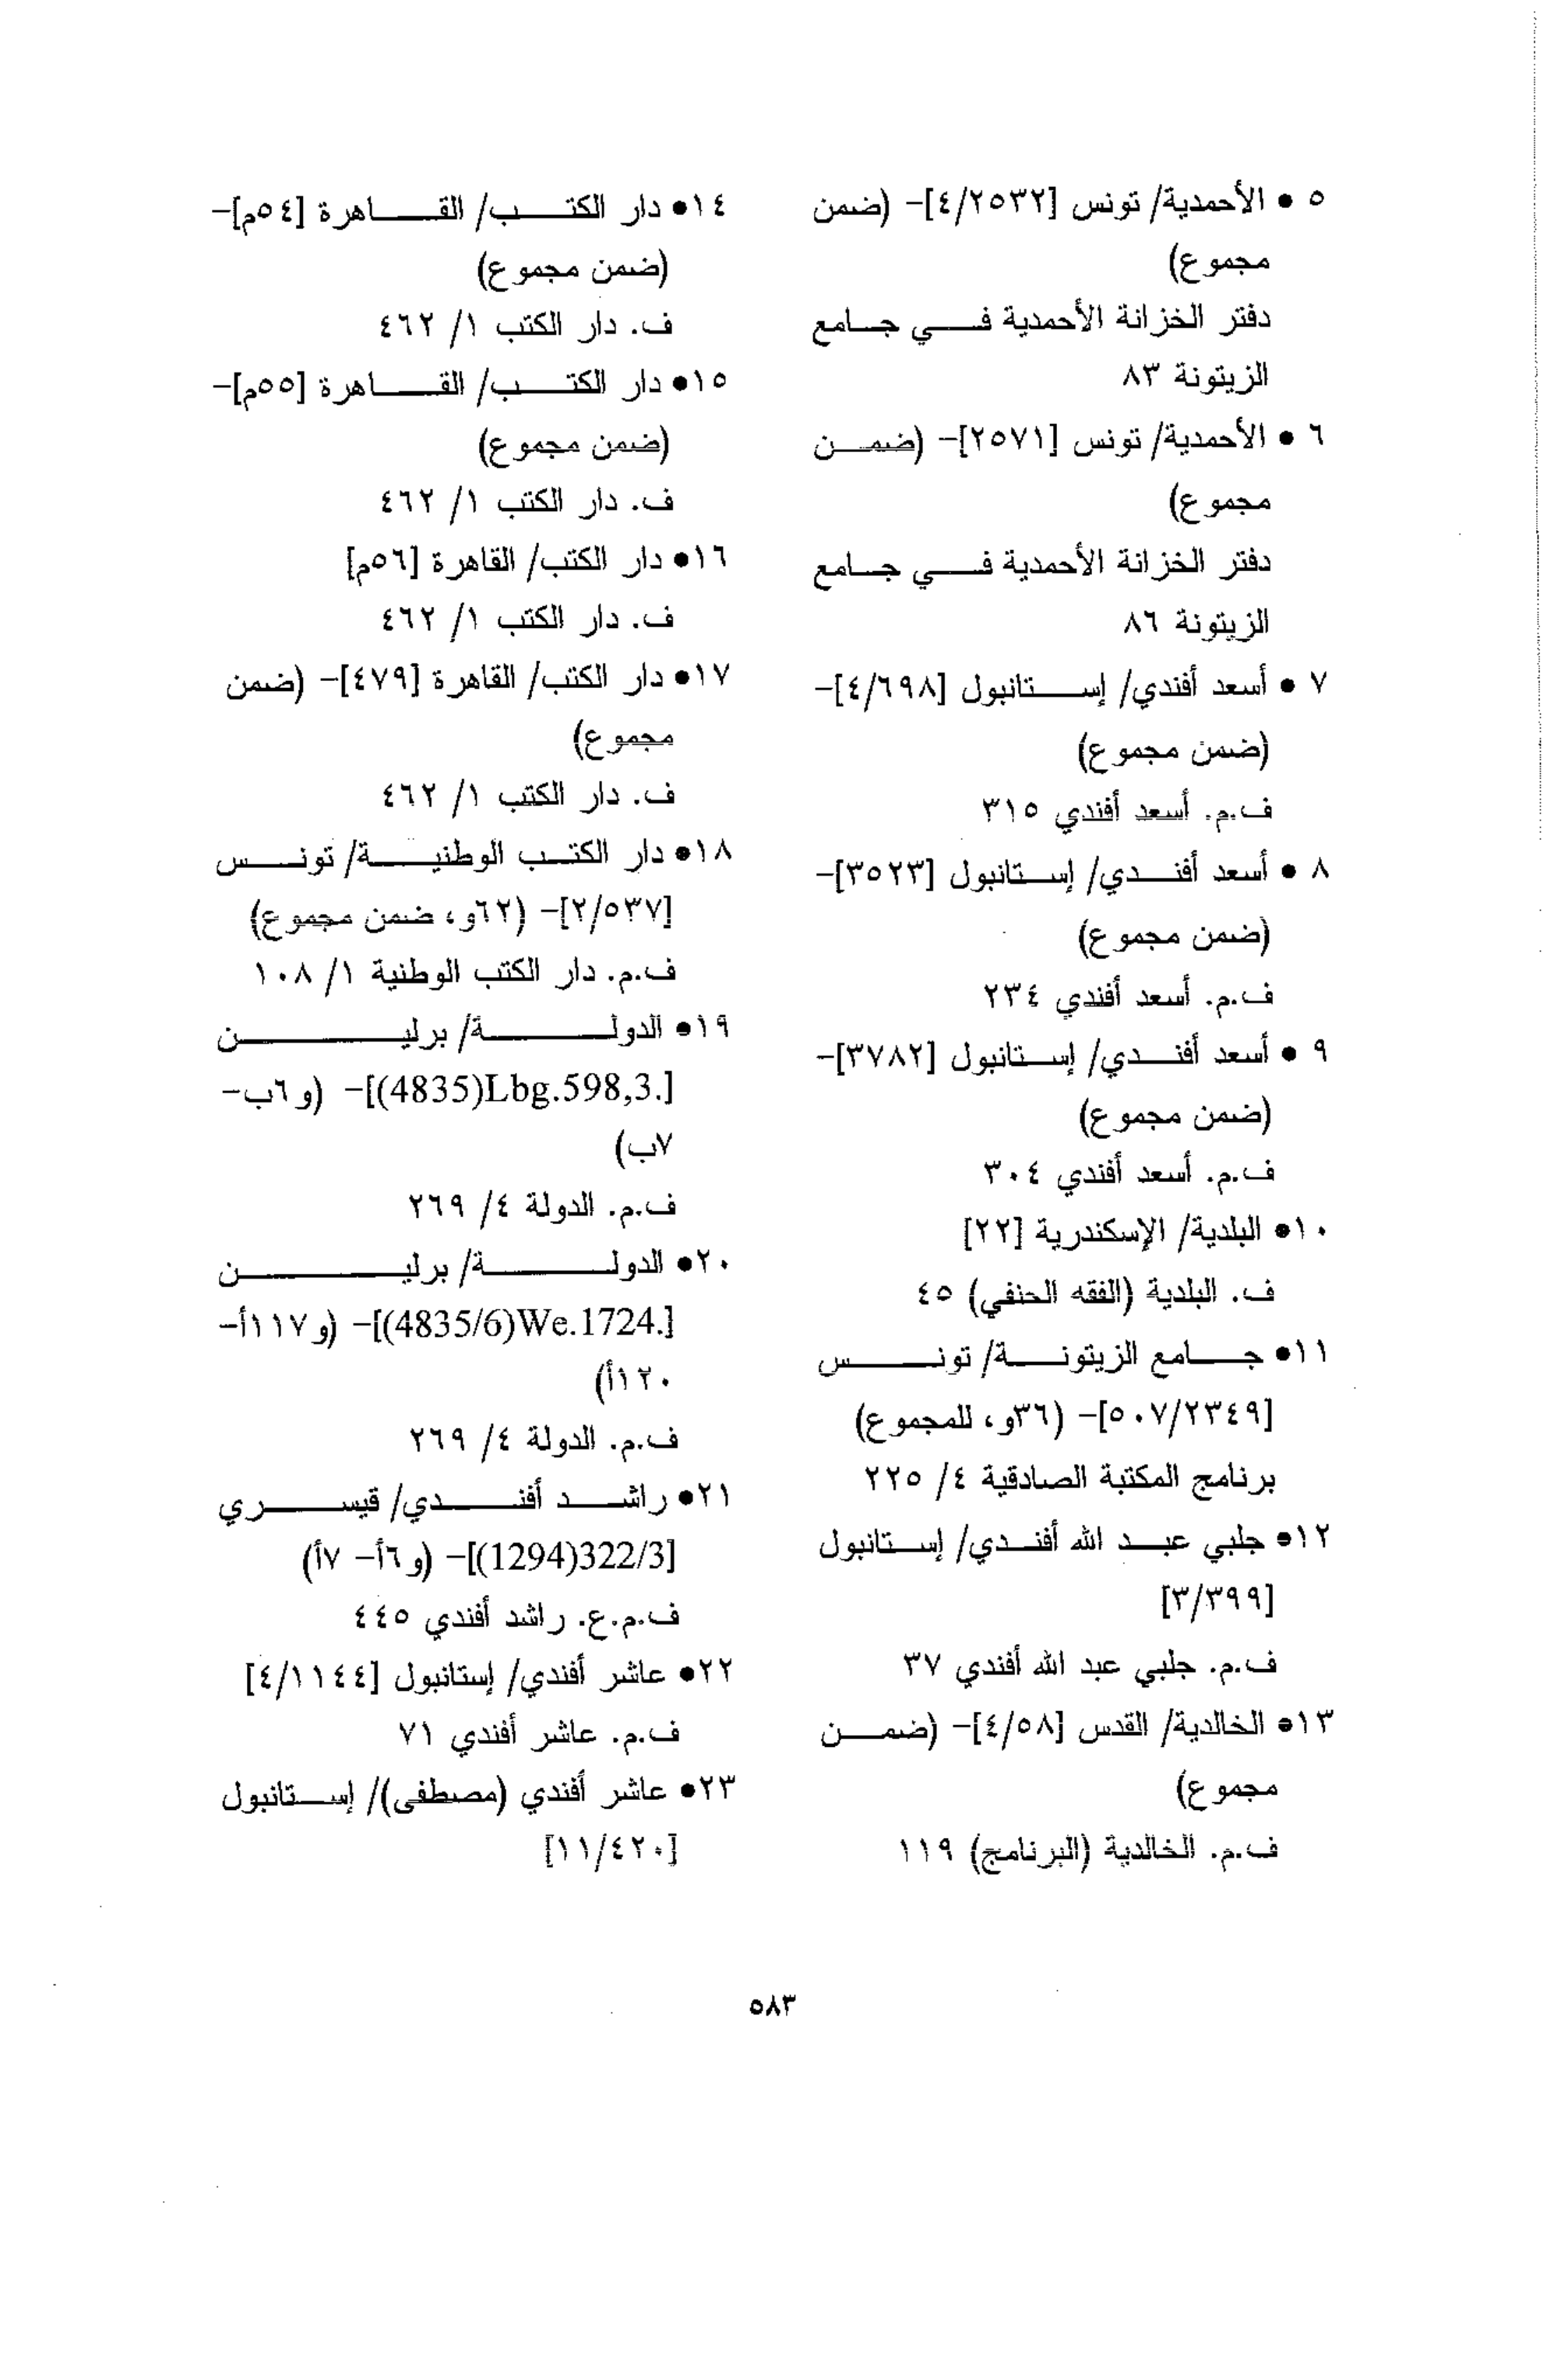 ٥ • الأحمدية/ تونس [٤/٢٥٣٢]- (ضمن
مجموع)
دفتر الخزانة الأحمدية في جامع
الزيتونة ٨٣
٦ • الأحمدية/ تونس [٢٥٧١]- (ضمن
مجموع)
دفتر الخزانة الأحمدية في جامع
الزيتونة ٨٦
٧ • أسعد أفندي/ إستانبول [٤/٦٩٨]-
(ضمن مجموع)
ف.م. أسعد أفندي ٣١٥
٨ • أسعد أفندي/ إستانبول [٣٥٢٣]-
(ضمن مجموع)
ف.م. أسعد أفندي ٢٣٤
٩ • أسعد أفندي/ إستانبول [٣٧٨٢]-
(ضمن مجموع)
ف.م. أسعد أفندي ٣٠٤
١٠• البلدية/ الإسكندرية [٢٢]
ف. البلدية (الفقه الحنفي) ٤٥
١١• جامع الزيتونة/ تونس
[٥٠٧/٢٣٤٩]- (٣٦و، للمجموع)
برنامج المكتبة الصادقية ٤/ ٢٢٥
١٢• جلبي عبد الله أفندي/ إستانبول
[٣/٣٩٩]
ف.م. جلبي عبد الله أفندي ٣٧
١٣• الخالدية/ القدس [٤/٥٨]- (ضمن
مجموع)
ف.م. الخالدية (البرنامج) ١١٩
١٤• دار الكتب/ القاهرة [٥٤م]-
(ضمن مجموع)
ف. دار الكتب ١/ ٤٦٢
١٥• دار الكتب/ القاهرة [٥٥م]-
(ضمن مجموع)
ف. دار الكتب ١/ ٤٦٢
١٦• دار الكتب/ القاهرة [٥٦م]
ف. دار الكتب ١/ ٤٦٢
١٧• دار الكتب/ القاهرة [٤٧٩]- (ضمن
مجموع)
ف. دار الكتب ١/ ٤٦٢
١٨• دار الكتب الوطنية/ تونس
[٢/٥٣٧]- (٦٢و، ضمن مجموع)
ف.م. دار الكتب الوطنية ١/ ١٠٨
١٩• الدولة/ برلين
[(4835)Lbg.598,3.]- (و٦ب-
٧ب)
ف.م. الدولة ٤/ ٢٦٩
٢٠• الدولة/ برلين
[(4835/6)We.1724.]- (و١١٧أ-
١٢٠أ)
ف.م. الدولة ٤/ ٢٦٩
٢١• راشد أفندي/ قيسري
[(1294)322/3]- (و٦أ- ٧أ)
ف.م.ع. راشد أفندي ٤٤٥
٢٢• عاشر أفندي/ إستانبول [٤/١١٤٤]
ف.م. عاشر أفندي ٧١
٢٣• عاشر أفندي (مصطفى)/ إستانبول
[١١/٤٢٠]
٥٨٣